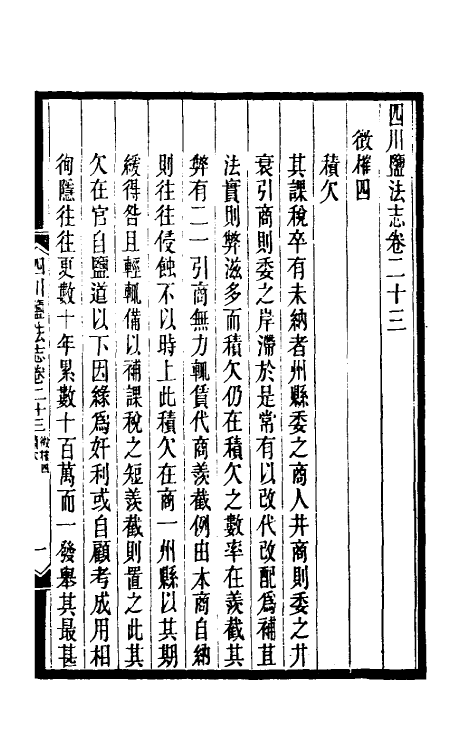 四川鹽法志卷二十三
徵榷四
積欠
其課稅卒有未納者州縣委之商人井商則委之井
衰引商則委之岸滯於是常有以改代改配爲補苴
法實則弊滋多而積欠仍在積欠之數率在羨截其
弊有二一引商無力輒賃代商羨截例由本商自納
則往往侵蝕不以時上此積欠在商一州縣以其期
緩得咎且輕輒備以補課稅之短羨截則置之此其
欠在官自鹽道以下因緣爲奸利或自顧考成用相
徇隱往往更數十年累數十百萬而一發舉其最甚
四川鹽法志卷二十三
徵榷四
積欠
一